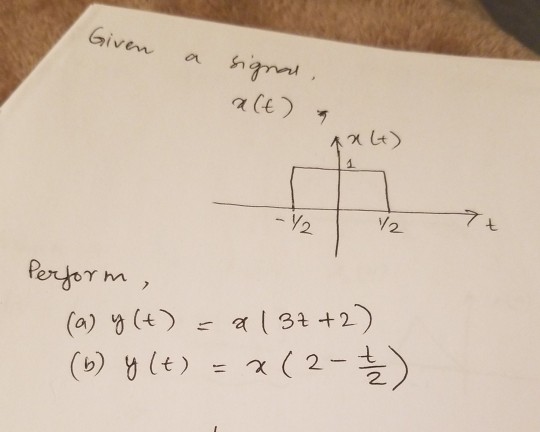 Given a signal,
x(t)
x(t)
1
-1/2 1/2 t
Perform,
(a) y(t) = x(3t+2)
(b) y(t) = x(2-t/2)